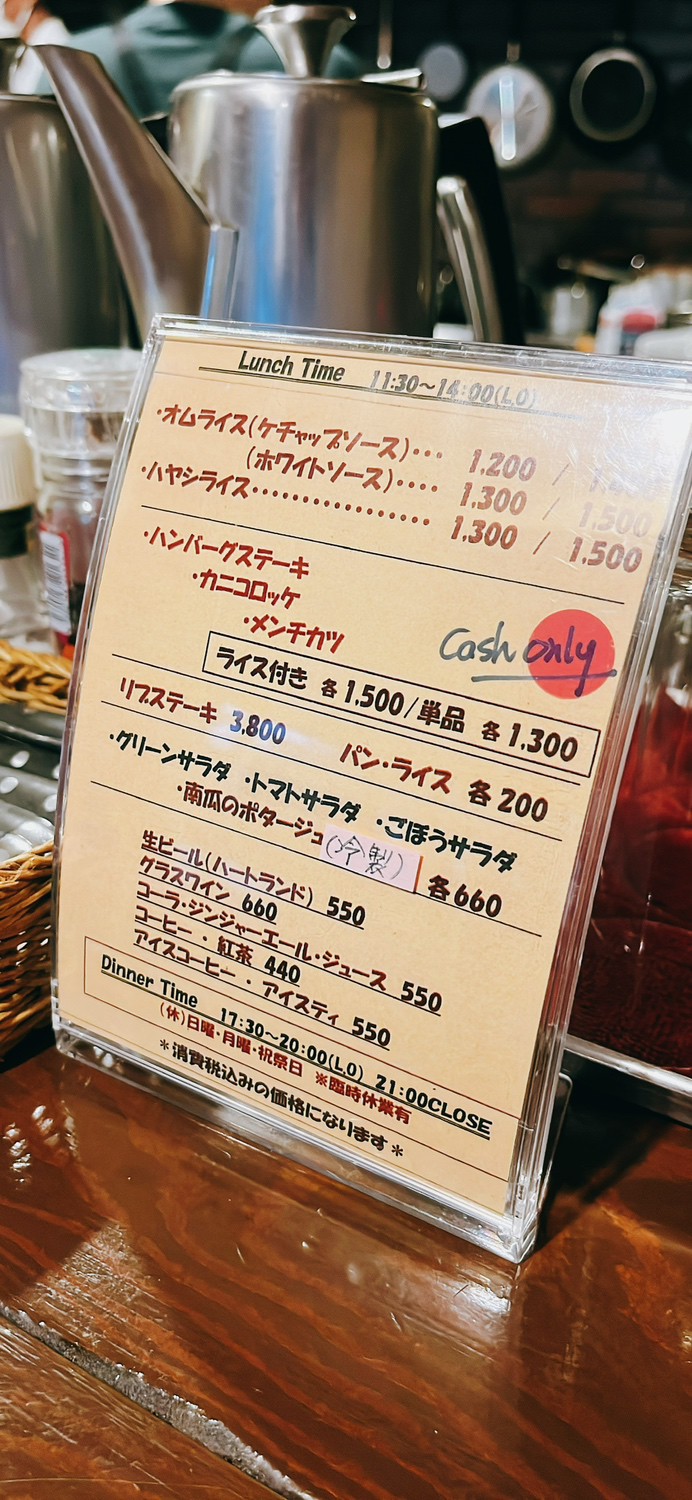 Lunch Time 11:30～14:00(L.O)
・オムライス(ケチャップソース)… 1.200 /
(ホワイトソース)‥‥ 1.300 / 1.500
・ハヤシライス・・・・・・・・・・・・・・・・ 1.300 / 1.500
・ハンバーグステーキ
・カニコロッケ
・メンチカツ
Cash only
ライス付き 各1.500/単品 各1.300
リブステーキ 3,800 パン・ライス 各200
・グリーンサラダ ・トマトサラダ ・ごぼうサラダ
・南瓜のポタージュ(冷製) 各660
生ビール(ハートランド) 550
グラスワイン 660
コーラ・ジンジャーエール・ジュース 550
コーヒー・紅茶 440
アイスコーヒー・アイスティ 550
Dinner Time 17:30～20:00(L.O) 21:00CLOSE
(休)日曜・月曜・祝祭日 ※臨時休業有
＊消費税込みの価格になります＊